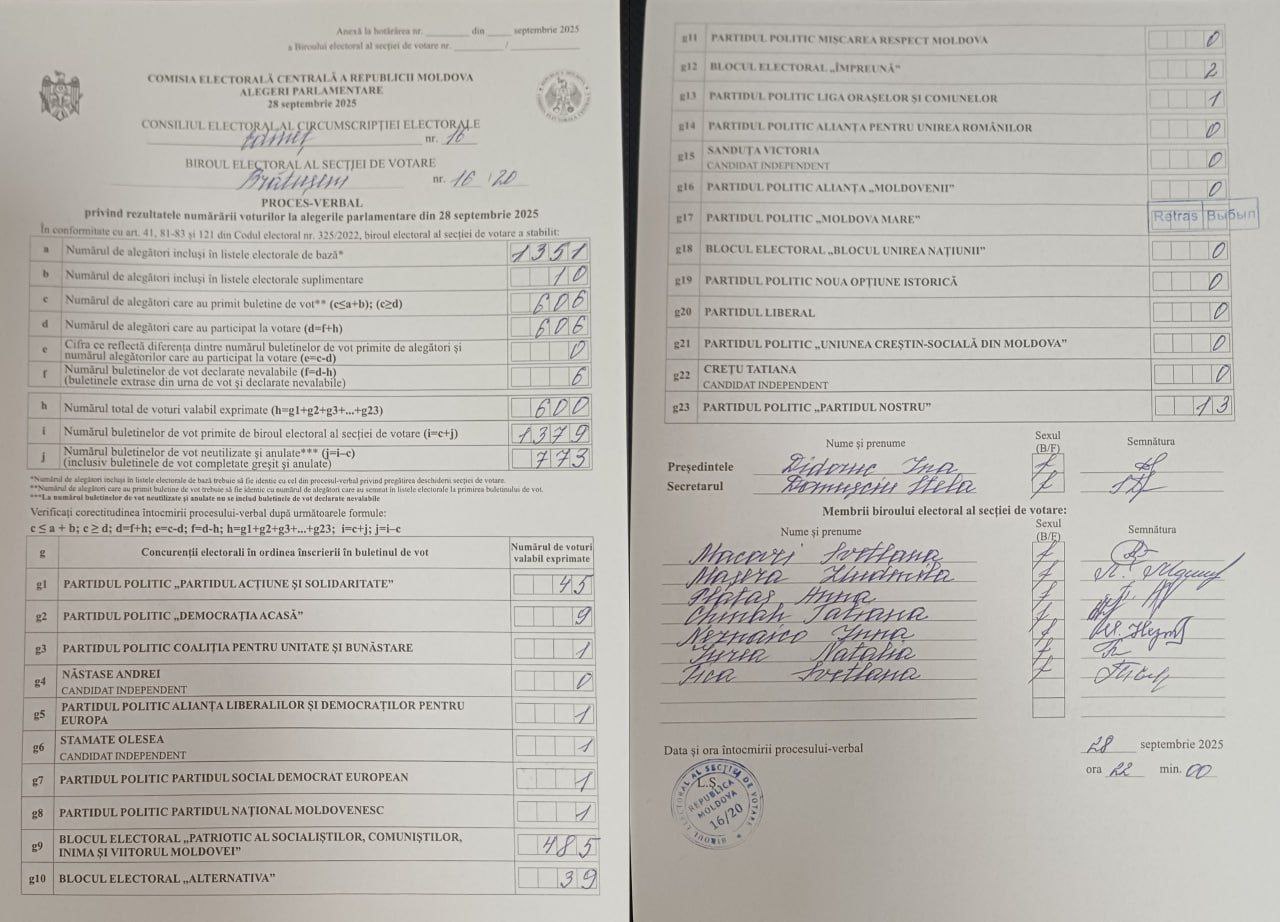 Anexă la hotărârea nr. ________ din ____ septembrie 2025
a Biroului electoral al secției de votare nr. ________ / ________
COMISIA ELECTORALĂ CENTRALĂ A REPUBLICII MOLDOVA
ALEGERI PARLAMENTARE
28 septembrie 2025
CONSILIUL ELECTORAL AL CIRCUMSCRIPȚIEI ELECTORALE
Edineț nr. 16
BIROUL ELECTORAL AL SECȚIEI DE VOTARE
Brătușeni nr. 16 / 20
PROCES-VERBAL
privind rezultatele numărării voturilor la alegerile parlamentare din 28 septembrie 2025
În conformitate cu art. 41, 81-83 și 121 din Codul electoral nr. 325/2022, biroul electoral al secției de votare a stabilit:
a Numărul de alegători incluși în listele electorale de bază* 1351
b Numărul de alegători incluși în listele electorale suplimentare 10
c Numărul de alegători care au primit buletine de vot** (c≤a+b); (c≥d) 606
d Numărul de alegători care au participat la votare (d=f+h) 606
e Cifra ce reflectă diferența dintre numărul buletinelor de vot primite de alegători și
numărul alegătorilor care au participat la votare (e=c-d) 0
f Numărul buletinelor de vot declarate nevalabile (f=d-h)
(buletinele extrase din urna de vot și declarate nevalabile) 6
h Numărul total de voturi valabil exprimate (h=g1+g2+g3+...+g23) 600
i Numărul buletinelor de vot primite de biroul electoral al secției de votare (i=c+j) 1379
j Numărul buletinelor de vot neutilizate și anulate*** (j=i–c)
(inclusiv buletinele de vot completate greșit și anulate) 773
*Numărul de alegători incluși în listele electorale de bază trebuie să fie identic cu cel din procesul-verbal privind pregătirea deschiderii secției de votare.
**Numărul de alegători care au primit buletine de vot trebuie să fie identic cu numărul de alegători care au semnat în listele electorale la primirea buletinului de vot.
***La numărul buletinelor de vot neutilizate și anulate nu se includ buletinele de vot declarate nevalabile
Verificați corectitudinea întocmirii procesului-verbal după următoarele formule:
c ≤ a + b; c ≥ d; d=f+h; e=c-d; f=d-h; h=g1+g2+g3+...+g23; i=c+j; j=i–c
g Concurenții electorali în ordinea înscrierii în buletinul de vot Numărul de voturi valabil exprimate
g1 PARTIDUL POLITIC „PARTIDUL ACȚIUNE ȘI SOLIDARITATE” 45
g2 PARTIDUL POLITIC „DEMOCRAȚIA ACASĂ” 9
g3 PARTIDUL POLITIC COALIȚIA PENTRU UNITATE ȘI BUNĂSTARE 1
g4 NĂSTASE ANDREI
CANDIDAT INDEPENDENT 0
g5 PARTIDUL POLITIC ALIANȚA LIBERALILOR ȘI DEMOCRAȚILOR PENTRU
EUROPA 1
g6 STAMATE OLESEA
CANDIDAT INDEPENDENT 1
g7 PARTIDUL POLITIC PARTIDUL SOCIAL DEMOCRAT EUROPEAN 1
g8 PARTIDUL POLITIC PARTIDUL NAȚIONAL MOLDOVENESC 1
g9 BLOCUL ELECTORAL „PATRIOTIC AL SOCIALIȘTILOR, COMUNIȘTILOR,
INIMA ȘI VIITORUL MOLDOVEI” 485
g10 BLOCUL ELECTORAL „ALTERNATIVA” 39
g11 PARTIDUL POLITIC MIȘCAREA RESPECT MOLDOVA 0
g12 BLOCUL ELECTORAL „ÎMPREUNĂ” 2
g13 PARTIDUL POLITIC LIGA ORAȘELOR ȘI COMUNELOR 1
g14 PARTIDUL POLITIC ALIANȚA PENTRU UNIREA ROMÂNILOR 0
g15 SANDUȚA VICTORIA
CANDIDAT INDEPENDENT 0
g16 PARTIDUL POLITIC ALIANȚA „MOLDOVENII” 0
g17 PARTIDUL POLITIC „MOLDOVA MARE” Retras Выбыл
g18 BLOCUL ELECTORAL „BLOCUL UNIREA NAȚIUNII” 0
g19 PARTIDUL POLITIC NOUA OPȚIUNE ISTORICĂ 0
g20 PARTIDUL LIBERAL 0
g21 PARTIDUL POLITIC „UNIUNEA CREȘTIN-SOCIALĂ DIN MOLDOVA” 0
g22 CREȚU TATIANA
CANDIDAT INDEPENDENT 0
g23 PARTIDUL POLITIC „PARTIDUL NOSTRU” 13
Nume și prenume Sexul (B/F) Semnătura
Președintele Ina f
Secretarul Domușciu Stela f
Membrii biroului electoral al secției de votare:
Nume și prenume Sexul (B/F) Semnătura
Macari Svetlana f
f
Anna f
Tatiana f
Neznaico Inna f
Natalia f
Svetlana f
Data și ora întocmirii procesului-verbal 28 septembrie 2025
ora 22 min. 00
L.Ș.
BIROUL ELECTORAL AL SECȚIEI DE VOTARE
REPUBLICA MOLDOVA
16/20